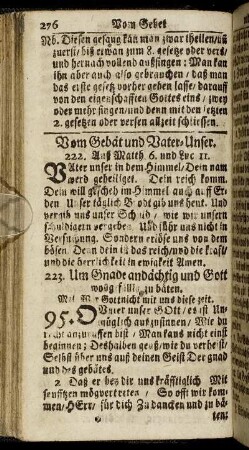 276 Vom Gebet
Nb. Diesen gesang kan man zwar theilen/ uñ
zuersi/ biß etwan zum 8. gesetze oder vers/
und hernach vollend außsingen: Man kan
ihn aber auch also gebrauchen / daß man
das erste gesetz vorher geben lasse/ darauff
von den eigenschafften Gottes eins / zwey
oder mehr singen/ und denn mit den letzten
2. gesetzen oder versen allzeit schliessen.
Vom Gebät und Vater-Unser.
222. Auß Matth 6. und Luc 11.
VAter unser in dem Himmel/ Dein nam
werd geheiliget. Dein reich komm.
Dein will gscheh im Himmel auch auff Er
den Unser täglich Brodt gib uns heut. Und
vergib uns unser Schuld / wie wir unsern
schuldigern vergeben Und führ uns nicht in
Versuchung. Sondern erlöse uns von dem
bösen. Denn dein ist das reich/ und die krafft
und die herrlichkeit in ewigkeit Amen.
223. Um Gnade andächtig und Gott
wolgfällig zu bäten.
Mel. Wo Gott nicht mit uns diese zeit.
95. O Vater unser GOtt / es ist Un
müglich außzusinnen / Wie du
recht anzuruffen bist / Man kans nicht einst
beginnen; Deshalben geuß/ wie du verheist/
Selbst über uns auf deinen Geist Der gnad
und des gebätes.
2 Daß er bey dir uns kräfftiglich Mit
seufftzen mög vertreten / So offt wir kom
men/ HErr/ für dich Zu dancken und zu bä
ten: